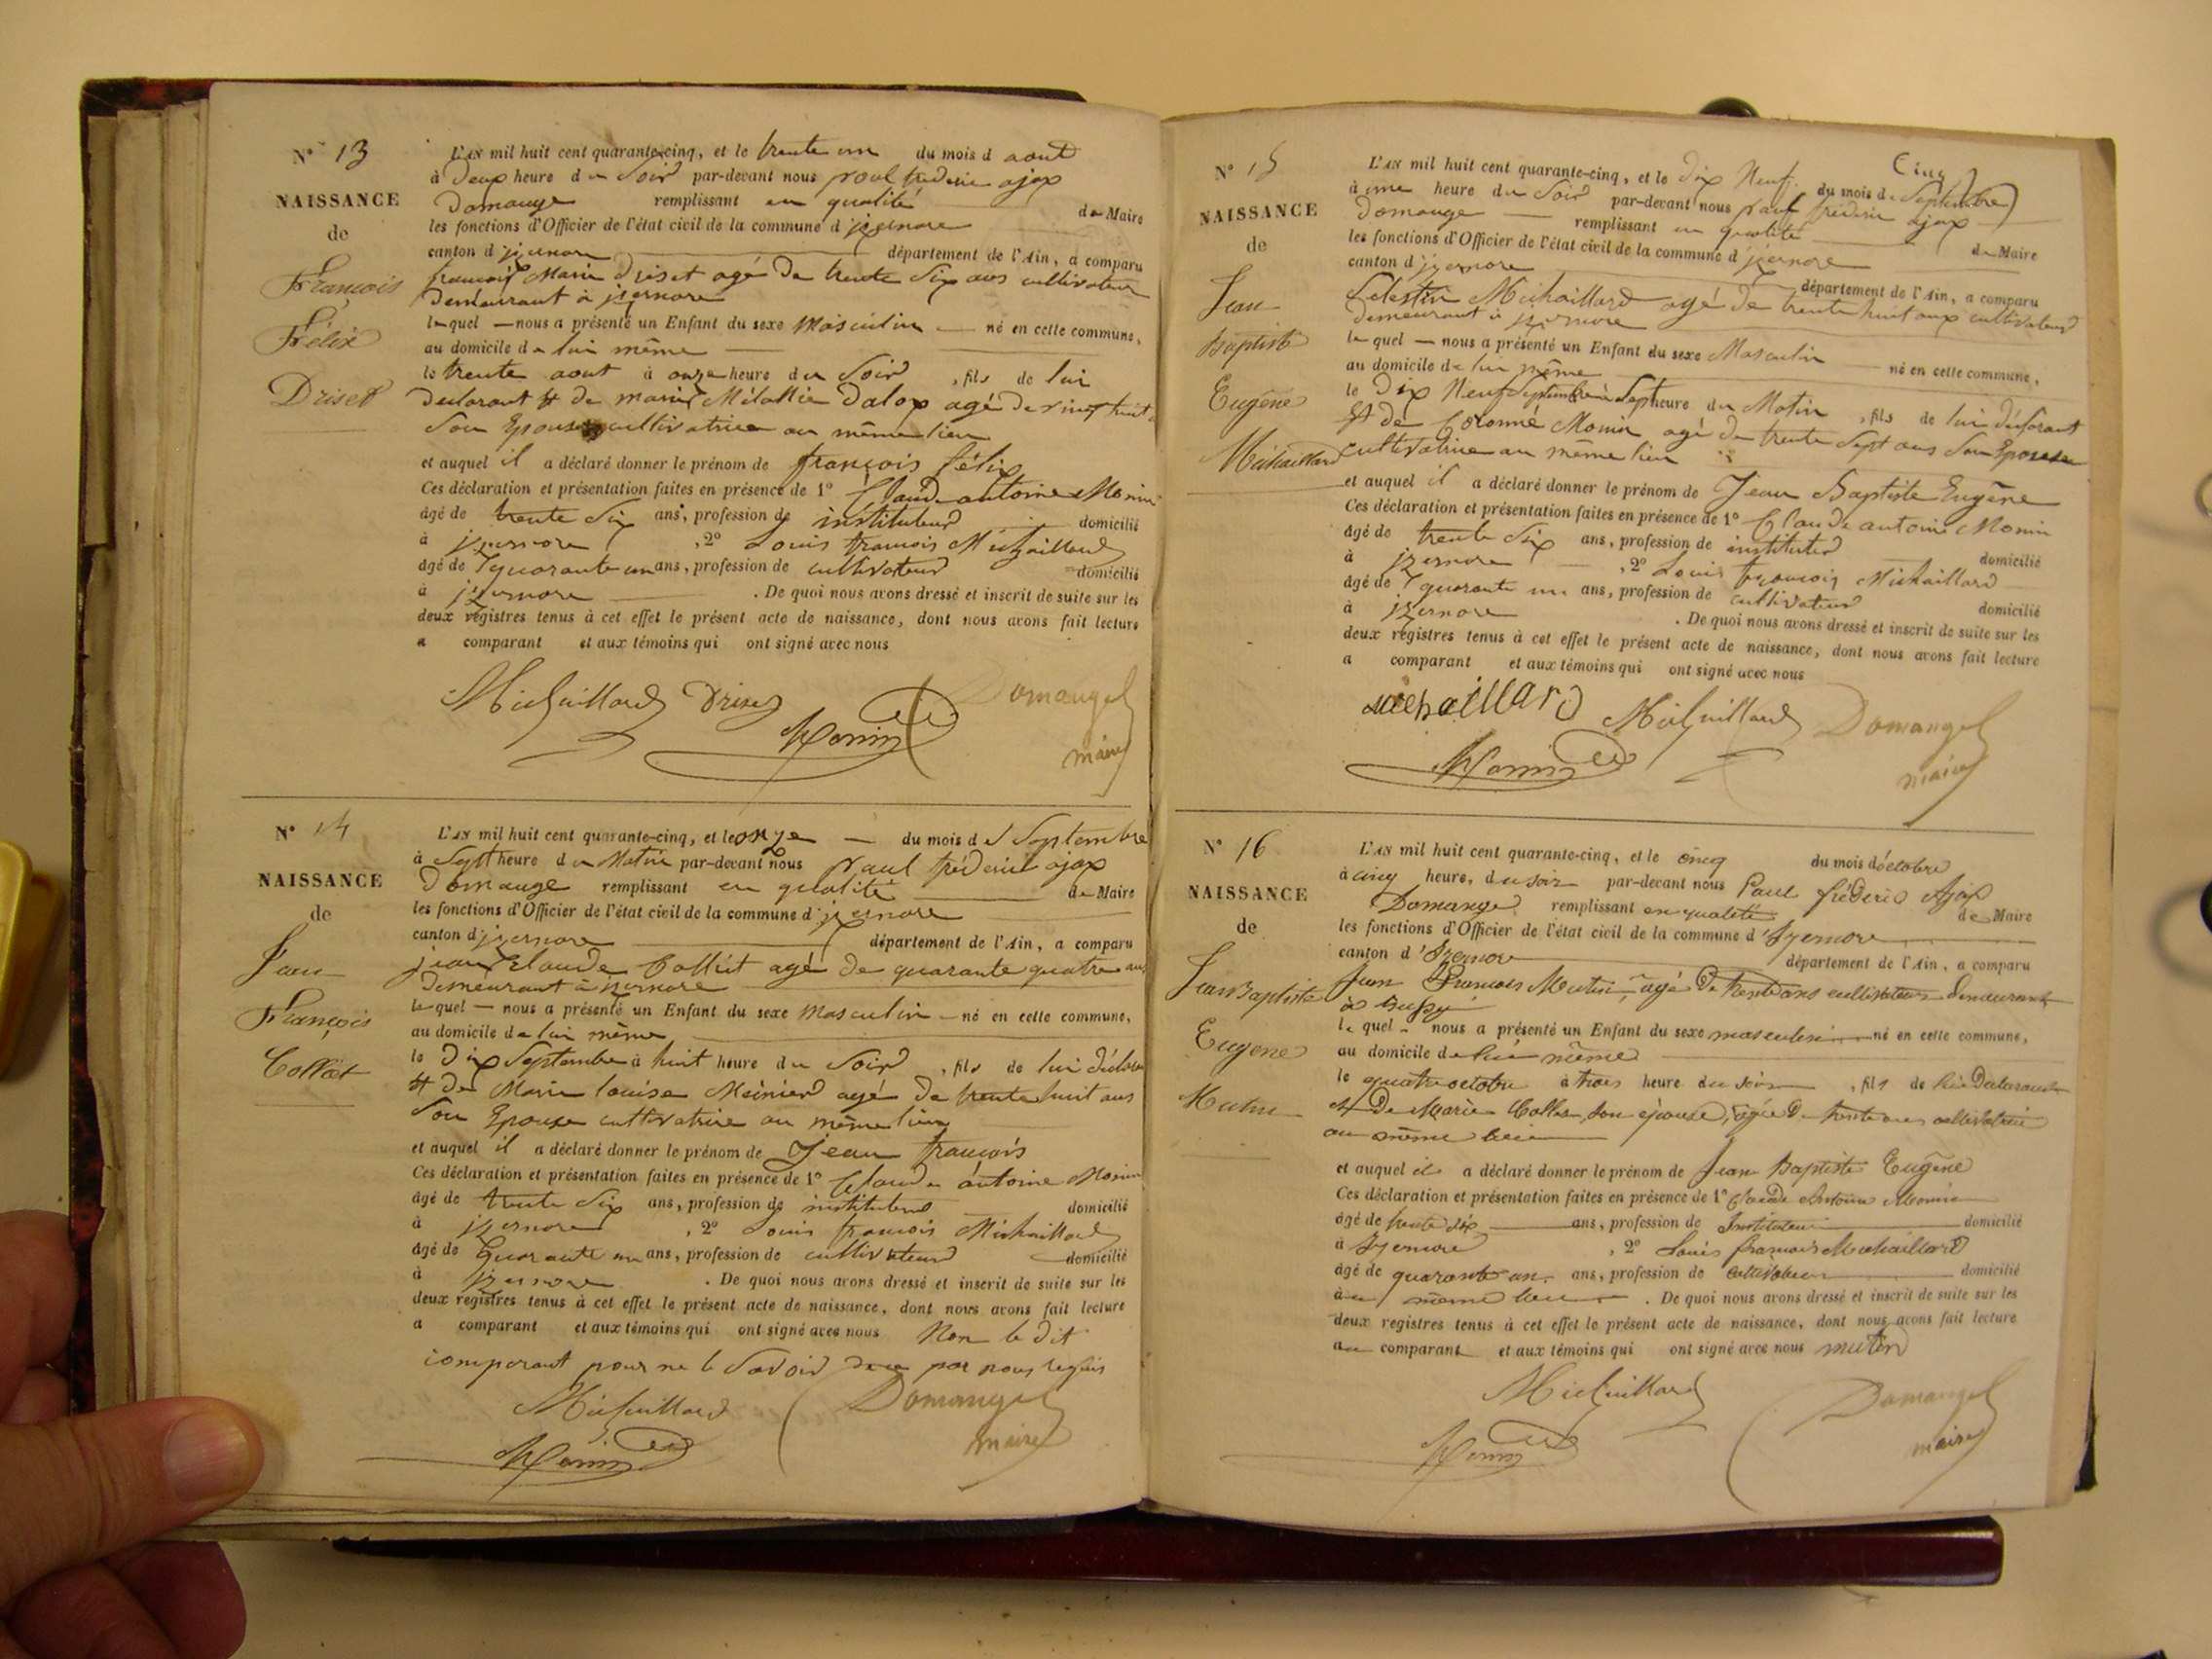 N° 13
NAISSANCE
de
François
Félix
Driset
L'AN mil huit cent quarante-cinq, et le trente un du mois d aout
à Deux heure du Soir par-devant nous paul frederic ajax
Domange remplissant en qualité de Maire
les fonctions d'Officier de l'état civil de la commune d'izernore
canton d'izernore département de l'Ain, a comparu
françois Marie Driset agé de trente Six ans cultivateur
Demeurant à izernore
lequel nous a présenté un Enfant du sexe Masculin né en cette commune,
au domicile de lui même
le trente aout à onze heure du Soir, fils de lui
declarant et de marie Mélanie Dalox agé de vingt huit
Son Epouse cultivatrice au même lieu
et auquel il a déclaré donner le prénom de françois félix
Ces déclaration et présentation faites en présence de 1° Claude antoine Monin
âgé de trente Six ans, profession de instituteur domicilié
à izernore, 2° Louis françois Michaillard
âgé de quarante un ans, profession de cultivateur domicilié
à izernore. De quoi nous avons dressé et inscrit de suite sur les
deux registres tenus à cet effet le présent acte de naissance, dont nous avons fait lecture
a comparant et aux témoins qui ont signé avec nous
Michaillard Driset Domange
Monin maire
N° 14
NAISSANCE
de
Jean
François
Collet
L'AN mil huit cent quarante-cinq, et le onze du mois d Septembre
à Sept heure du Matin par-devant nous paul fréderic ajax
Domange remplissant en qualité de Maire
les fonctions d'Officier de l'état civil de la commune d'izernore
canton d'izernore département de l'Ain, a comparu
jean Claude Collet agé de quarante quatre ans
Demeurant à izernore
lequel nous a présenté un Enfant du sexe Masculin né en cette commune,
au domicile de lui même
le Dix Septembre à huit heure du Soir, fils de lui déclarant
et de Marie louise Meinier agé de trente huit ans
Son Epouse cultivatrice au même lieu
et auquel il a déclaré donner le prénom de Jean françois
Ces déclaration et présentation faites en présence de 1° Claude antoine Monin
âgé de trente Six ans, profession de instituteur domicilié
à izernore, 2° Louis françois Michaillard
âgé de Quarante un ans, profession de cultivateur domicilié
à izernore. De quoi nous avons dressé et inscrit de suite sur les
deux registres tenus à cet effet le présent acte de naissance, dont nous avons fait lecture
a comparant et aux témoins qui ont signé avec nous Non le dit
comparant pour ne le Savoir par nous requis
Michaillard Domange
Monin maire
N° 15
NAISSANCE
de
Jean
Baptiste
Eugêne
Michaillard
Cinq
L'AN mil huit cent quarante-cinq, et le Dix Neuf du mois de Septembre
à une heure du Soir par-devant nous paul fréderic ajax
Domange remplissant en qualité de Maire
les fonctions d'Officier de l'état civil de la commune d'izernore
canton d'izernore département de l'Ain, a comparu
Celestin Michaillard agé de trente huit ans cultivateur
Demeurant à izernore
lequel nous a présenté un Enfant du sexe Masculin né en cette commune,
au domicile de lui même
le Dix Neuf Septembre à Sept heure du Matin, fils de lui déclarant
et de Monin agé de trente Sept ans Son Epouse
cultivatrice au même lieu
et auquel il a déclaré donner le prénom de Jean Baptiste Eugêne
Ces déclaration et présentation faites en présence de 1° Claude antoine Monin
âgé de trente Six ans, profession de instituteur domicilié
à izernore, 2° Louis françois Michaillard
âgé de quarante un ans, profession de cultivateur domicilié
à izernore. De quoi nous avons dressé et inscrit de suite sur les
deux registres tenus à cet effet le présent acte de naissance, dont nous avons fait lecture
a comparant et aux témoins qui ont signé avec nous
michaillard Michaillard Domange
Monin maire
N° 16
NAISSANCE
de
Jean Baptiste
Eugene
Mutin
L'AN mil huit cent quarante-cinq, et le cinq du mois d'octobre
à cinq heure, du soir par-devant nous Paul fréderic Ajax
Domange remplissant en qualité de Maire
les fonctions d'Officier de l'état civil de la commune d'Izernore
canton d'Izernore département de l'Ain, a comparu
Jean François Mutin, agé de trente ans cultivateur demeurant
à
lequel nous a présenté un Enfant du sexe masculin né en cette commune,
au domicile de lui même
le quatre octobre à trois heure du soir, fils de lui Declarant
et De Marie Collet, son épouse, agée De trente ans cultivatrice
au même lieu
et auquel il a déclaré donner le prénom de Jean Baptiste Eugène
Ces déclaration et présentation faites en présence de 1° Claude Antoine Monin
âgé de trente six ans, profession de Instituteur domicilié
à Izernore, 2° Louis françois Michaillard
âgé de quarante un ans, profession de cultivateur domicilié
au même lieu. De quoi nous avons dressé et inscrit de suite sur les
deux registres tenus à cet effet le présent acte de naissance, dont nous avons fait lecture
au comparant et aux témoins qui ont signé avec nous mutin
Michaillard Domange
Monin maire